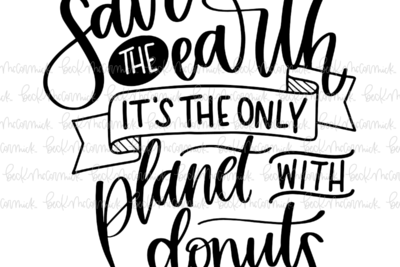 Save
THE earth
IT'S THE ONLY
planet WITH
donuts